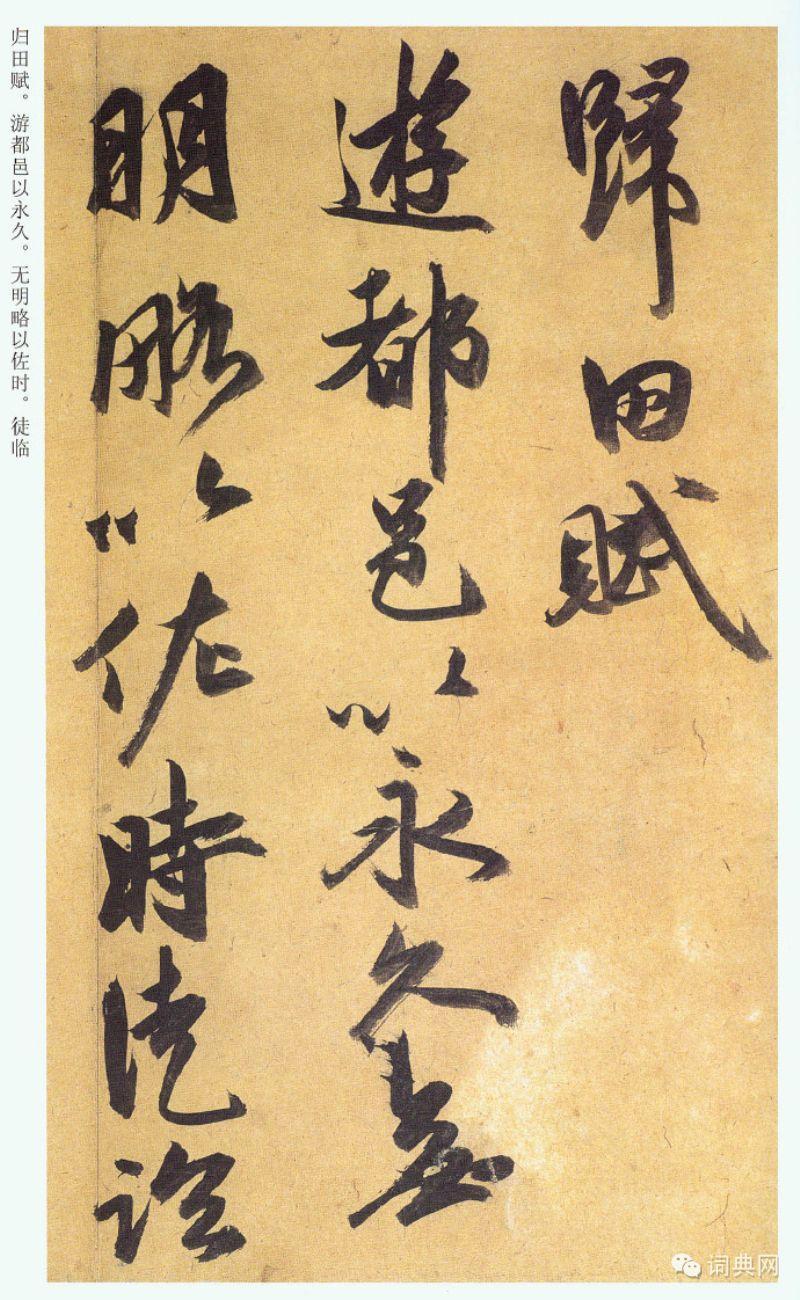 歸田賦
遊都邑以永久無
明略以佐時徒臨
归田赋。游都邑以永久。无明略以佐时。徒临
词典网